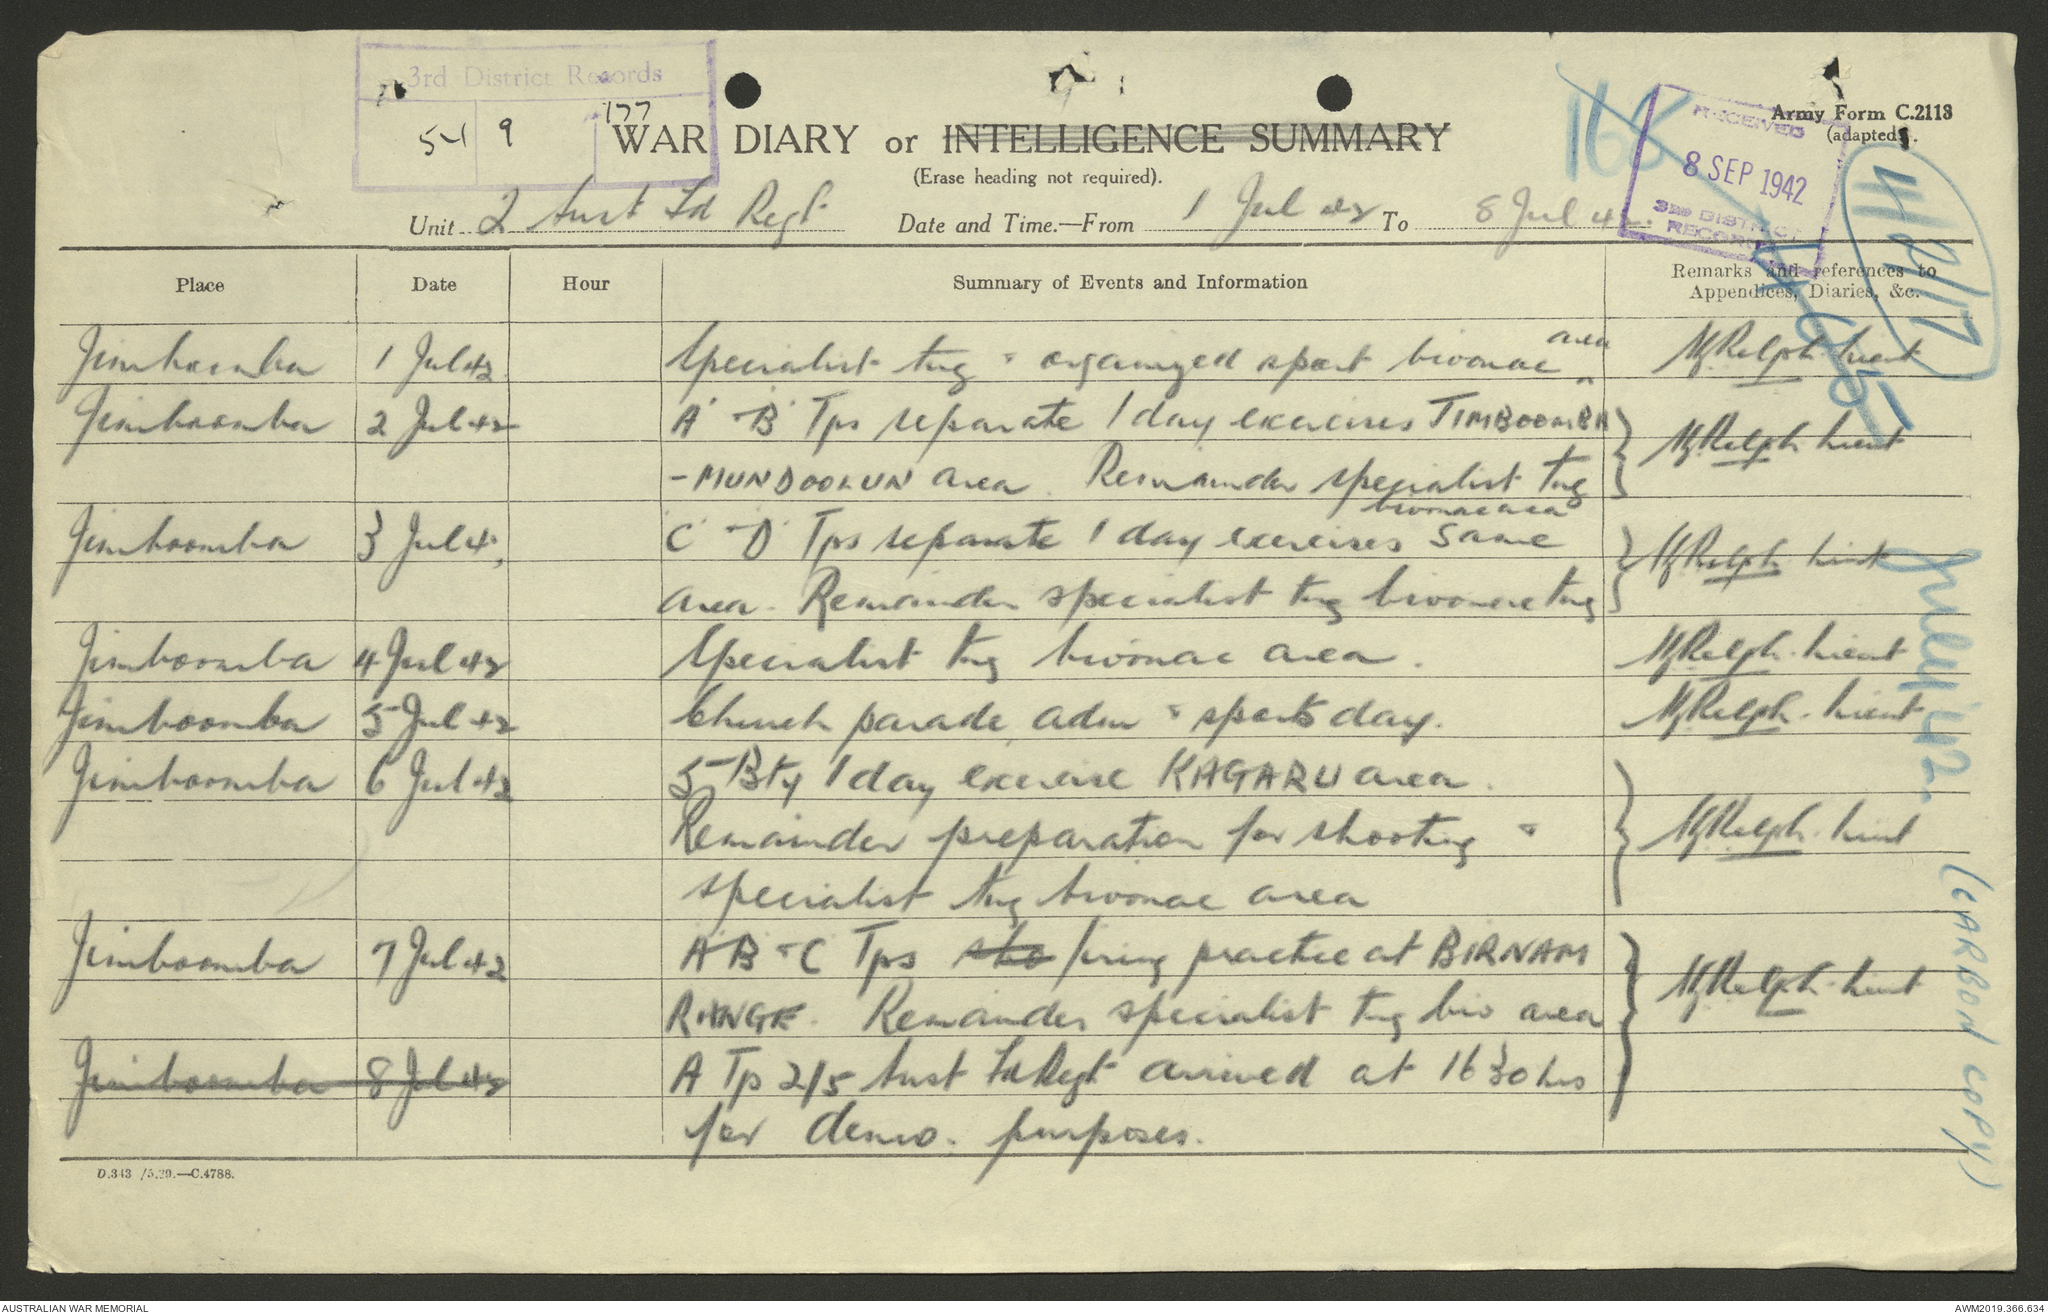 3rd District Records
54 9 177
Army Form C.2118
(adapted).
WAR DIARY or INTELLIGENCE SUMMARY
(Erase heading not required).
RECEIVED
8 SEP 1942
3RD DISTRICT
RECORDS
Unit 2 Aust Fd Regt Date and Time.—From 1 Jul 42 To 8 Jul 42.
Place Date Hour Summary of Events and Information Remarks and references to
Appendices, Diaries, &c.
Jimboomba 1 Jul 42 Specialist tng & organized sport bivouac area Relph Lieut
Jimboomba 2 Jul 42 'A' & 'B' Tps separate 1 day exercises JIMBOOMBA
- MUNDOOLUN area. Remainder specialist tng Relph Lieut
bivouac area
Jimboomba 3 Jul 42 'C' & 'D' Tps separate 1 day exercises same
area. Remainder specialist tng bivouac tng Relph Lieut
Jimboomba 4 Jul 42 Specialist tng bivouac area. Relph Lieut
Jimboomba 5 Jul 42 Church parade, adm & sports day. Relph Lieut
Jimboomba 6 Jul 42 5 Bty 1 day exercise KAGARU area.
Remainder preparation for shooting & Relph Lieut
specialist tng bivouac area
Jimboomba 7 Jul 42 'A' 'B' & 'C' Tps sho firing practice at BIRNAM
RANGE. Remainder specialist tng biv area Relph Lieut
Jimboomba 8 Jul 42 A Tp 2/5 Aust Fd Regt arrived at 1630 hrs
for demo. purposes.
July 42.
(CARBON COPY)
D.343 /5.39.—C.4788.
AUSTRALIAN WAR MEMORIAL AWM2019.366.634